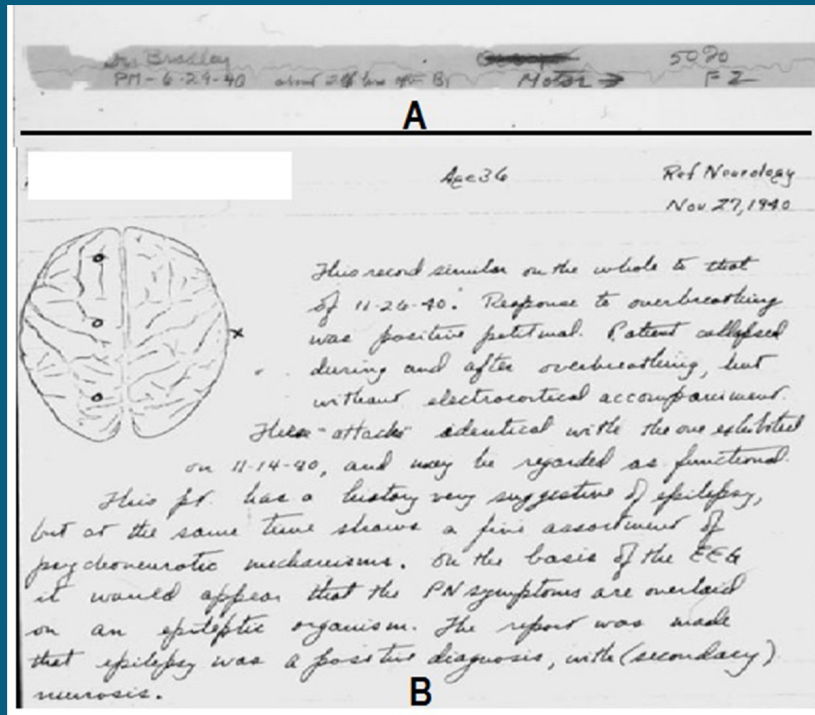 Dr Bradley 5020
PM - 6-29-40 about hrs after B1 Motor → FZ
A
Age 36 Ref Neurology
Nov 27, 1940
This record similar on the whole to that
of 11-26-40. Response to overbreathing
was positive petitmal. Patient collapsed
during and after overbreathing, but
without electrocortical accompaniment.
These attacks identical with the one exhibited
on 11-14-40, and may be regarded as functional.
This pt. has a history very suggestive of epilepsy,
but at the same time shows a fine assortment of
psychoneurotic mechanisms. On the basis of the EEG
it would appear that the PN symptoms are overlaid
on an epileptic organism. The report was made
that epilepsy was a positive diagnosis, with (secondary)
neurosis.
B